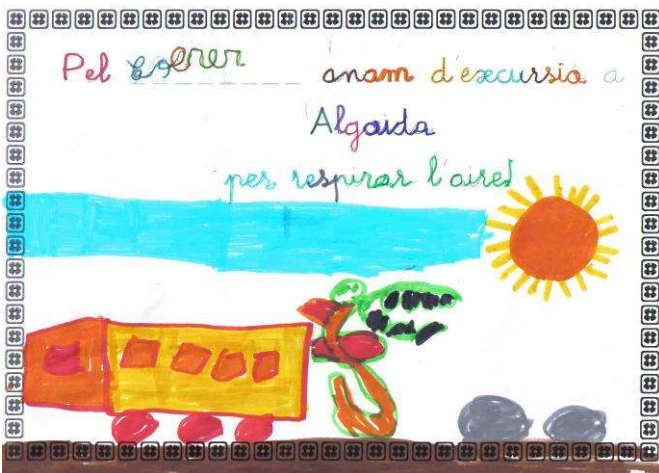 Pel anam d'excursio a
Algaida
per respirar l'aire!